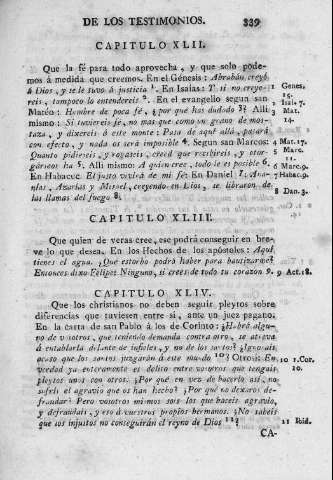 DE LOS TESTIMONIOS. 339
CAPITULO XLII.
Que la fé para todo aprovecha, y que solo podemos
á medida que creemos. En el Génesis: Abrahán creyó
á Dios, y se le tuvo á justicia 1. En Isaías: Y si no creyereis,
tampoco lo entendereis 2. En el evangelio segun san
Matéo: Hombre de poca fé, ¿por qué has dudado 3? Allí
mismo: Si tuviereis fé, no mas que como un grano de mostaza,
y dixereis á este monte: Pasa de aquí allá, pasará
con efecto, y nada os será imposible 4. Segun san Marcos:
Quanto pidiereis, y rogareis, creed que recibireis, y otorgáreos
ha 5. Allí mismo: A quien cree, todo le es posible 6.
En Habacuc: El justo vivirá de mi fé 7. En Daniel: Ananías,
Azarías y Missel, creyendo en Dios, se libraron de
las llamas del fuego 8.
1 Genes. 15.
2 Isai. 7.
3 Mat. 14.
4 Mat. 17.
5 Marc. 11.
6 Marc. 9.
7 Habac.
8 Dan. 3.
CAPITULO XLIII.
Que quien de veras cree, ese podrá conseguir en breve
lo que desea. En los Hechos de los apóstoles: Aquí
tienes el agua. ¿Que estorbo podrá haber para bautizarme?
Entonces dixo Felipe: Ninguno, si crees de todo tu corazón 9.
9 Act. 8.
CAPITULO XLIV.
Que los christianos no deben seguir pleytos sobre
diferencias que tuviesen entre sí, ante un juez pagano.
En la carta de san Pablo á los de Corinto: ¿Habrá alguno
de vosotros, que teniendo demanda contra otro, se atreva
á entablarla delante de infieles, y no de los santos? ¿Ignorais
acaso que los santos juzgarán de este mundo 10? Otrosí: En
verdad ya enteramente es delito entre vosotros que tengais
pleytos unos con otros. ¿Por qué en vez de hacerlo así, no
sufrís el agravio que os han hecho? ¿Por qué no dexaros defraudar?
Pero vosotros mismos sois los que haceis agravio,
y defraudais, y eso á vuestros propios hermanos. ¿No sabeis
que los injustos no conseguirán el reyno de Dios 11?
10 1. Cor.
11 Ibid.
CA-